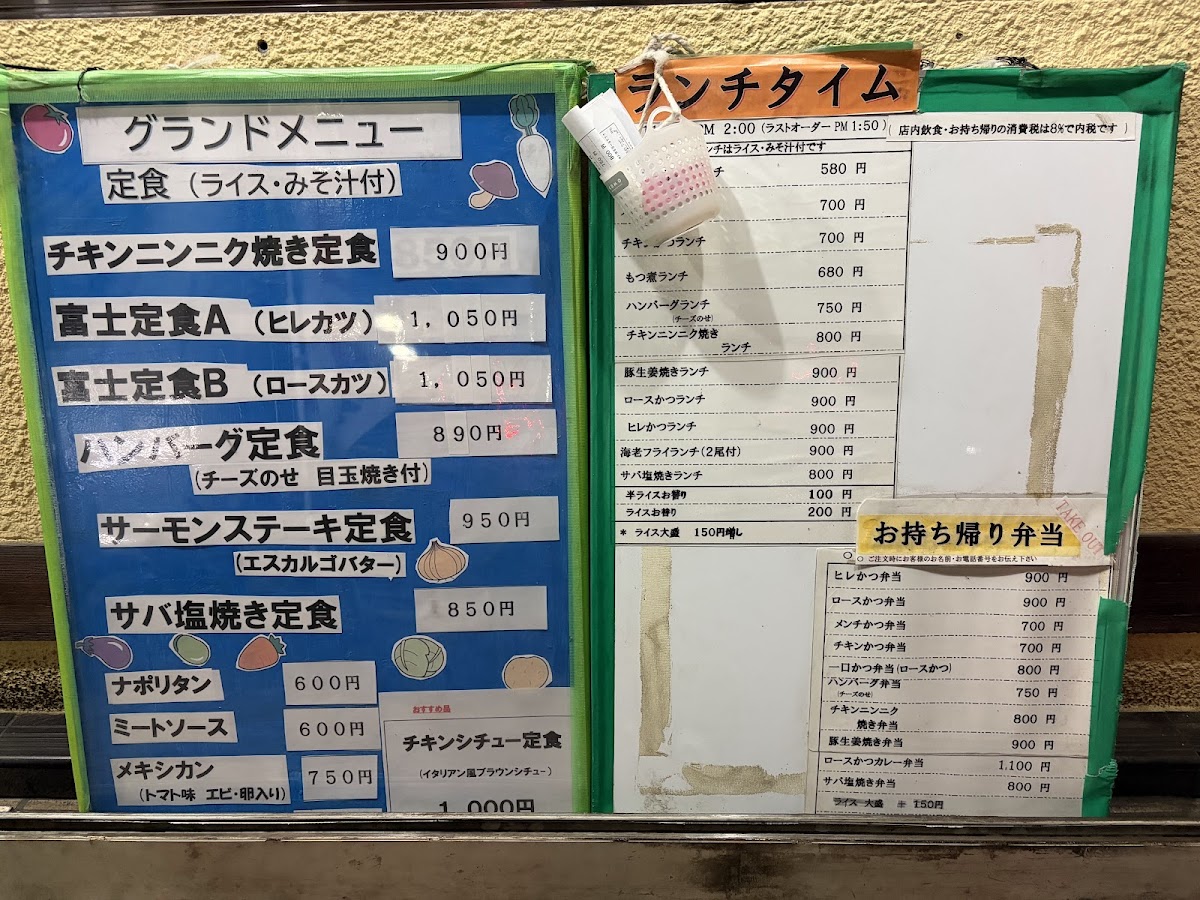 グランドメニュー
定食（ライス・みそ汁付）
チキンニンニク焼き定食 900円
富士定食A（ヒレカツ） 1,050円
富士定食B（ロースカツ） 1,050円
ハンバーグ定食 890円
（チーズのせ 目玉焼き付）
サーモンステーキ定食 950円
（エスカルゴバター）
サバ塩焼き定食 850円
ナポリタン 600円
ミートソース 600円
メキシカン 750円
（トマト味 エビ・卵入り）
おすすめ品
チキンシチュー定食
（イタリアン風ブラウンシチュー）
1,000円
ランチタイム
PM 2:00（ラストオーダー PM 1:50）
（店内飲食・お持ち帰りの消費税は8％で内税です）
ンチはライス・みそ汁付です
580 円
700 円
ランチ 700 円
もつ煮ランチ 680 円
ハンバーグランチ 750 円
（チーズのせ）
チキンニンニク焼き 800 円
ランチ
豚生姜焼きランチ 900 円
ロースかつランチ 900 円
ヒレかつランチ 900 円
海老フライランチ（2尾付） 900 円
サバ塩焼きランチ 800 円
半ライスお替り 100 円
ライスお替り 200 円
* ライス大盛 150円増し
お持ち帰り弁当
TAKE OUT
○ ご注文時にお客様のお名前・お電話番号をお伝え下さい
ヒレかつ弁当 900 円
ロースかつ弁当 900 円
メンチかつ弁当 700 円
チキンかつ弁当 700 円
一口かつ弁当（ロースかつ） 800 円
ハンバーグ弁当 750 円
（チーズのせ）
チキンニンニク 800 円
焼き弁当
豚生姜焼き弁当 900 円
ロースかつカレー弁当 1,100 円
サバ塩焼き弁当 800 円
ライス 大盛 ※ 150円